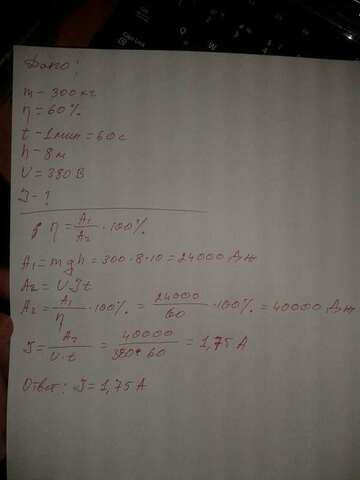 Дано:
m – 300 кг
η = 60%
t – 1 мин = 60 с
h – 8 м
U = 380 В
I – ?
η = A₁/A₂ · 100%
A₁ = mgh = 300 · 8 · 10 = 24000 Дж
A₂ = UIt
A₂ = A₁/η · 100% = 24000/60 · 100% = 40000 Дж
I = A₂/U·t = 40000/380·60 = 1,75 А
Ответ: I = 1,75 А